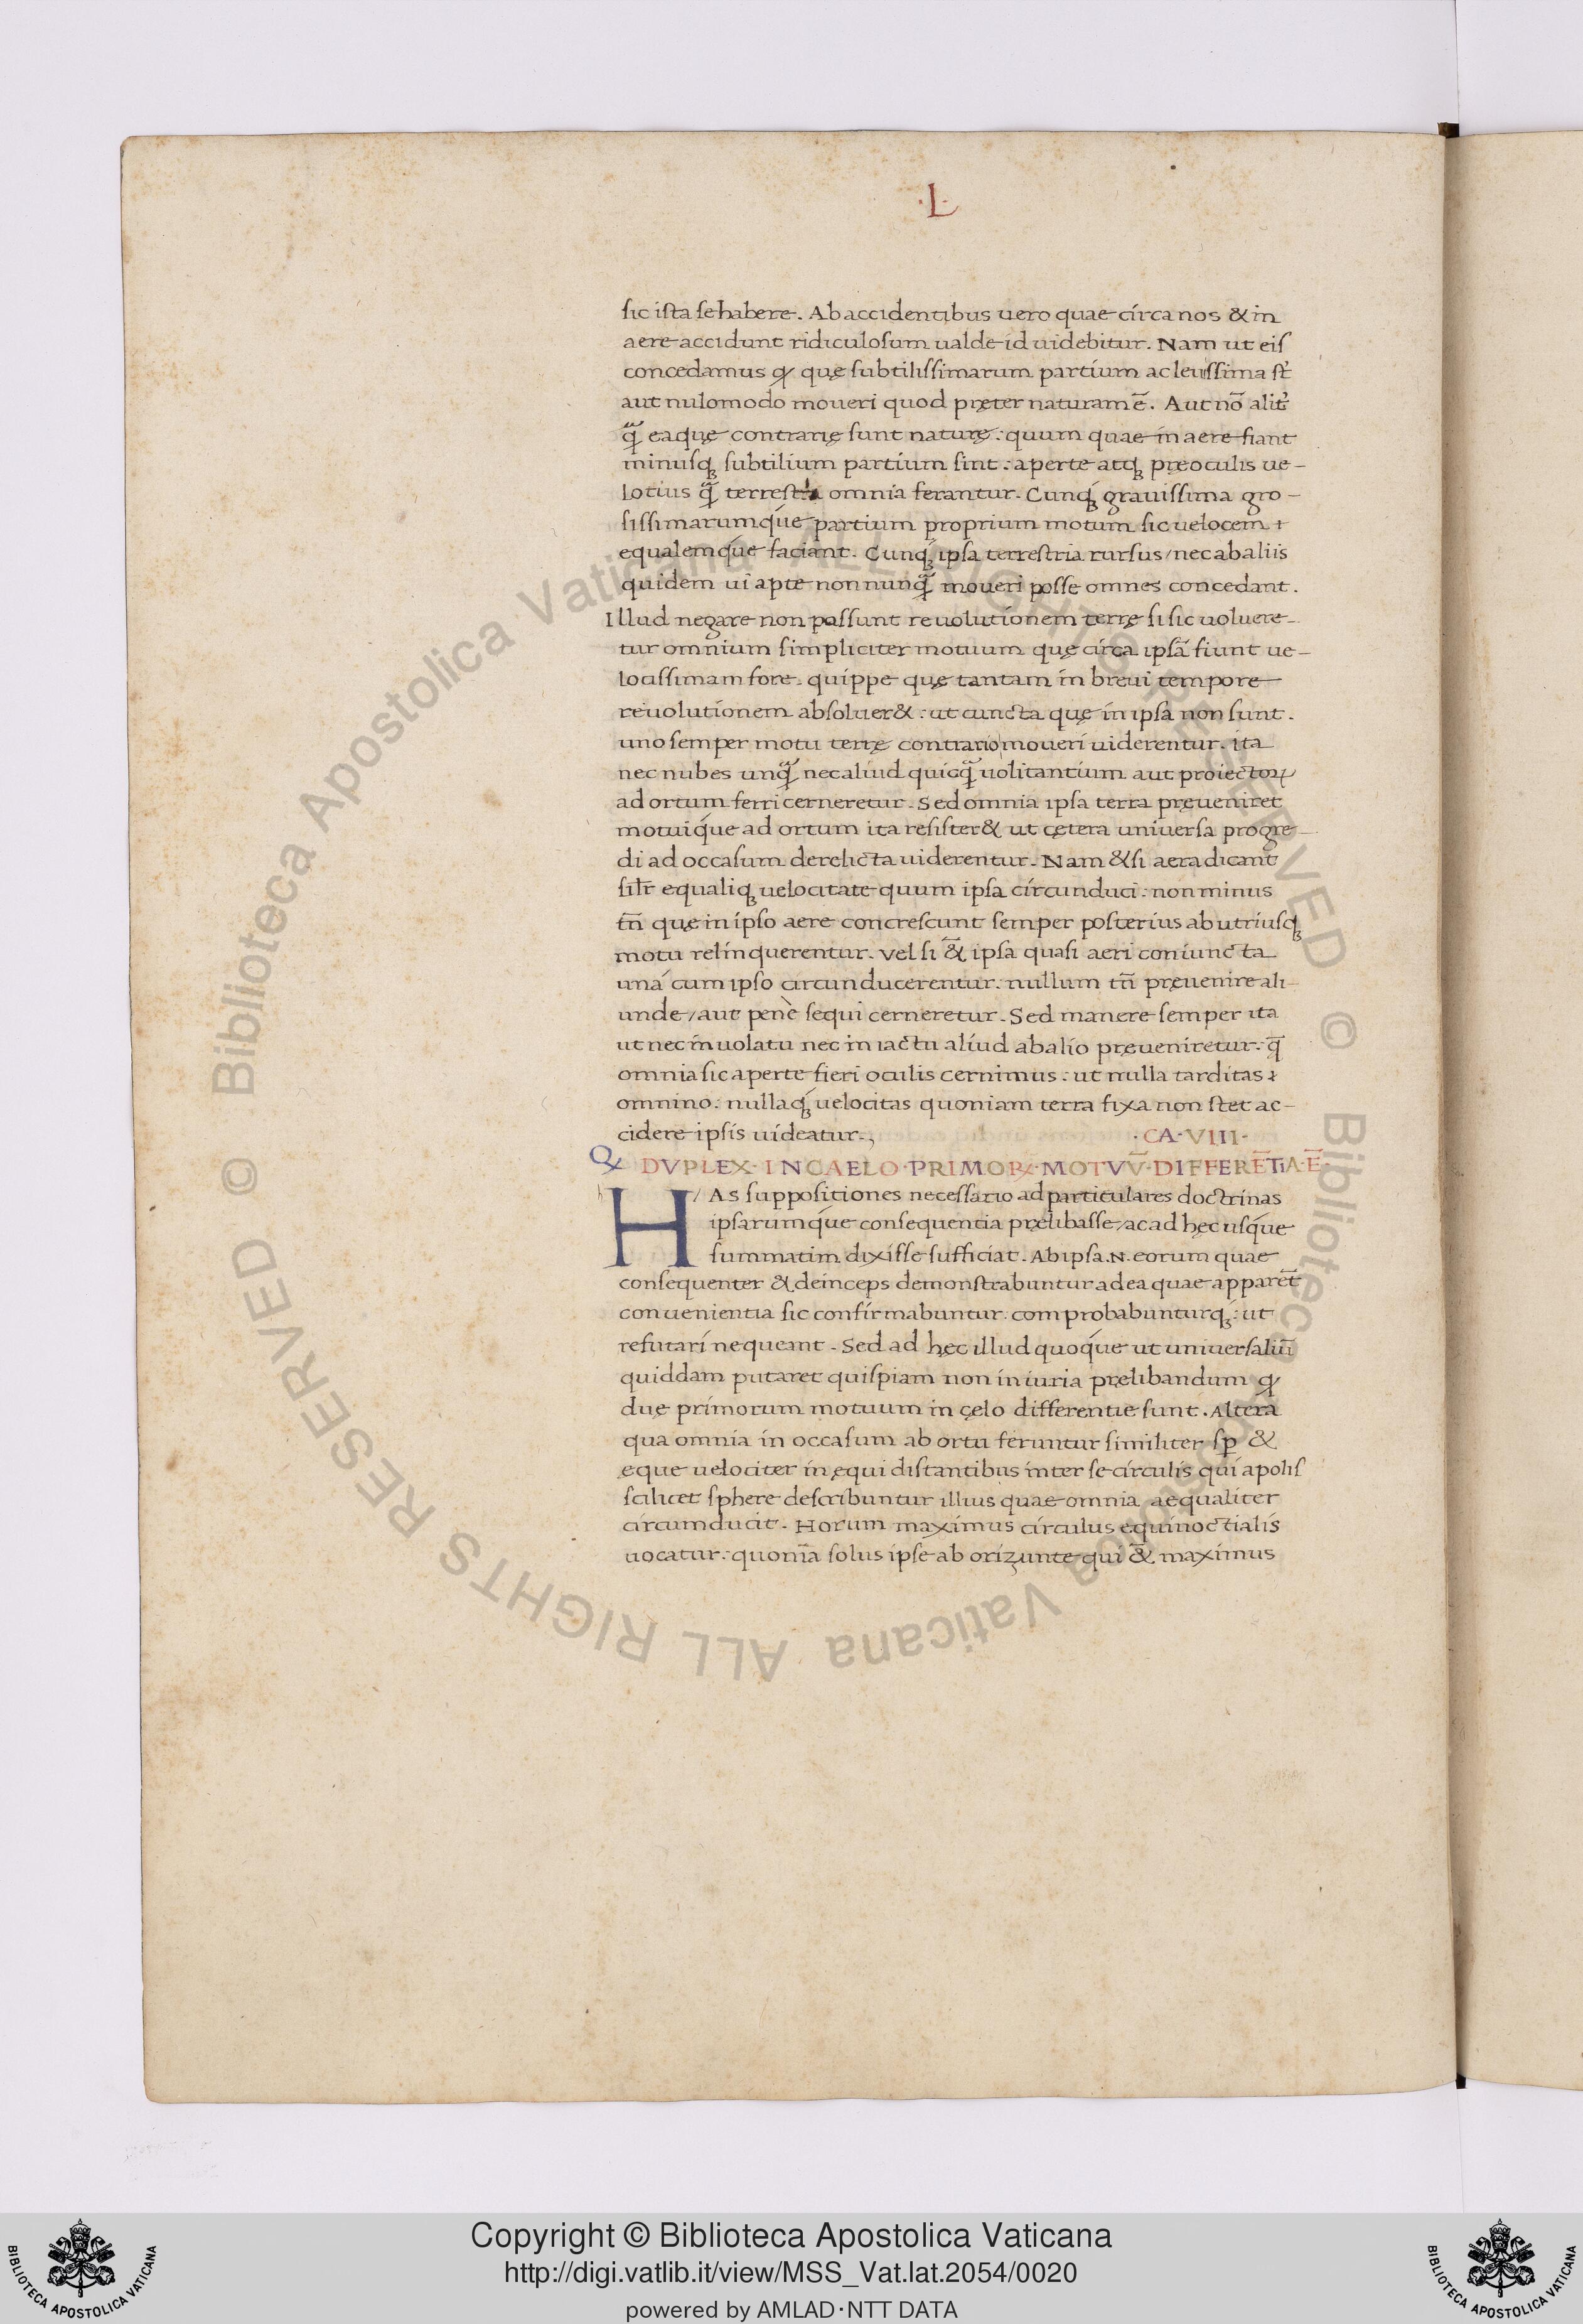 ·L·
sic ista se habere. Ab accidentibus uero quae circa nos & in
aere accidunt ridiculosum ualde id uidebitur. Nam ut eis
concedamus ꝙ quę subtilissimarum partium ac leuissima st̃
aut nulomodo moueri quod pręter naturam ē. Aut nō alit̃
q̃ȝ eaquę contrarię sunt naturę: quum quae in aere fiant
minusqȝ subtilium partium sint: aperte atqȝ pręoculis ue-
lotius q̃ȝ terrestria omnia ferantur. Cunqȝ grauissima gro-
sissimarumq́ue partium proprium motum sic uelocem
equalemq́ue faciant. Cunqȝ ipsa terrestria rursus/nec ab aliis
quidem ui apte non nunq̃ȝ moueri posse omnes concedant.
Illud negare non possunt reuolutionem terrę si sic uoluere-
tur omnium simpliciter motuum quę circa ipsā fiunt ue-
locissimam fore. quippe quę tantam in breui tempore
reuolutionem absoluer&: ut cuncta quę in ipsa non sunt.
uno semper motu terrę contrario moueri uiderentur. ita
nec nubes unq̃ȝ nec aliud quicq̃ȝ uolitantium aut proiectoꝝ
ad ortum ferri cerneretur. Sed omnia ipsa terra pręueniret
motuiq́ue ad ortum ita resister& ut cętera uniuersa progre-
di ad occasum derelicta uiderentur. Nam & si aera dicant
silr̃ equaliqȝ uelocitate quum ipsa circunduci: non minus
tñ quę in ipso aere concrescunt semper posterius ab utriusqȝ
motu relinquerentur. Vel si &̃ ipsa quasi aeri coniuncta
uná cum ipso circunducerentur. nullum tñ pręuenire ali-
unde/aut penè sequi cerneretur. Sed manere semper ita
ut nec in uolatu nec in iactu aliud ab alio pręueniretur: q̄
omnia sic aperte fieri oculis cernimus: ut nulla tarditas
omnino: nullaqȝ uelocitas quoniam terra fixa non stet ac-
cidere ipsis uideatur.,
·CA·VIII·
Ꝙ DVPLEX·IN CAELO·PRIMOꝜ·MOTVV̄·DIFFERĒTIA·Ē·
HAs suppositiones necessario ad particulares doctrinas
ipsarumq́ue consequentia pręlibasse/ac ad hęc usq́ue
summatim dixisse sufficiat. Ab ipsa .N. eorum quae
consequenter & deinceps demonstrabuntur ad ea quae apparēt
conuenientia sic confirmabuntur. comprobabunturqȝ: ut
refutari nequeant. Sed ad hęc illud quoq́ue ut uniuersaliū
quiddam putaret quispiam non iniuria pręlibandum ꝙ
duę primorum motuum in cęlo differentię sunt. Altera
qua omnia in occasum ab ortu feruntur similiter sꝑ &
ęque uelociter in ęquidistantibus inter se circulis qui a polis
scilicet sphere describuntur illius quae omnia aequaliter
circumducit. Horum maximus circulus equinoctialis
uocatur: quoniā solus ipse ab orizunte qui &̃ maximus
Copyright © Biblioteca Apostolica Vaticana
http://digi.vatlib.it/view/MSS_Vat.lat.2054/0020
powered by AMLAD·NTT DATA
BIBLIOTECA APOSTOLICA VATICANA
BIBLIOTECA APOSTOLICA VATICANA
© Biblioteca Apostolica Vaticana ALL RIGHTS RESERVED
© Biblioteca Apostolica Vaticana ALL RIGHTS RESERVED